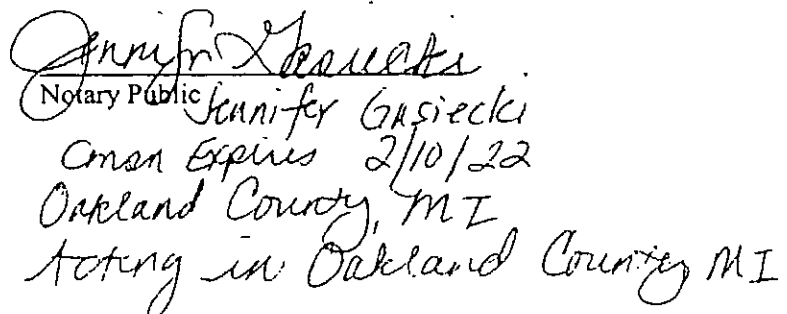 Jennifer Gasiecki
Notary Public
Jennifer Gasiecki
Cmsn Expires 2/10/22
Oakland County, MI
Acting in Oakland County MI